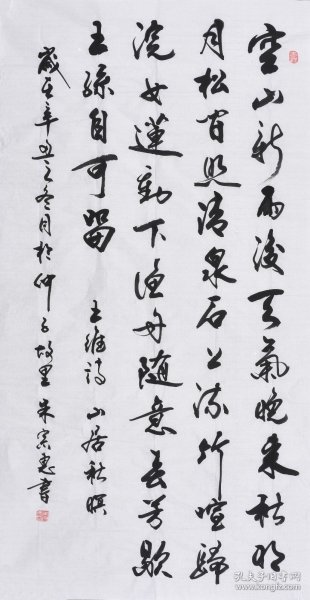 空山新雨後天氣晚来秋明
月松间照清泉石上流竹喧歸
浣女蓮動下漁舟随意春芳歇
王孫自可留 王維詩 山居秋暝
歲在辛丑之冬月於仲子故里 朱惠書
孔夫子旧书网